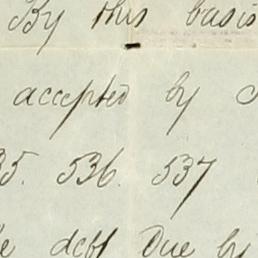 By this basis
accepted by
35. 536. 537
debt Due by